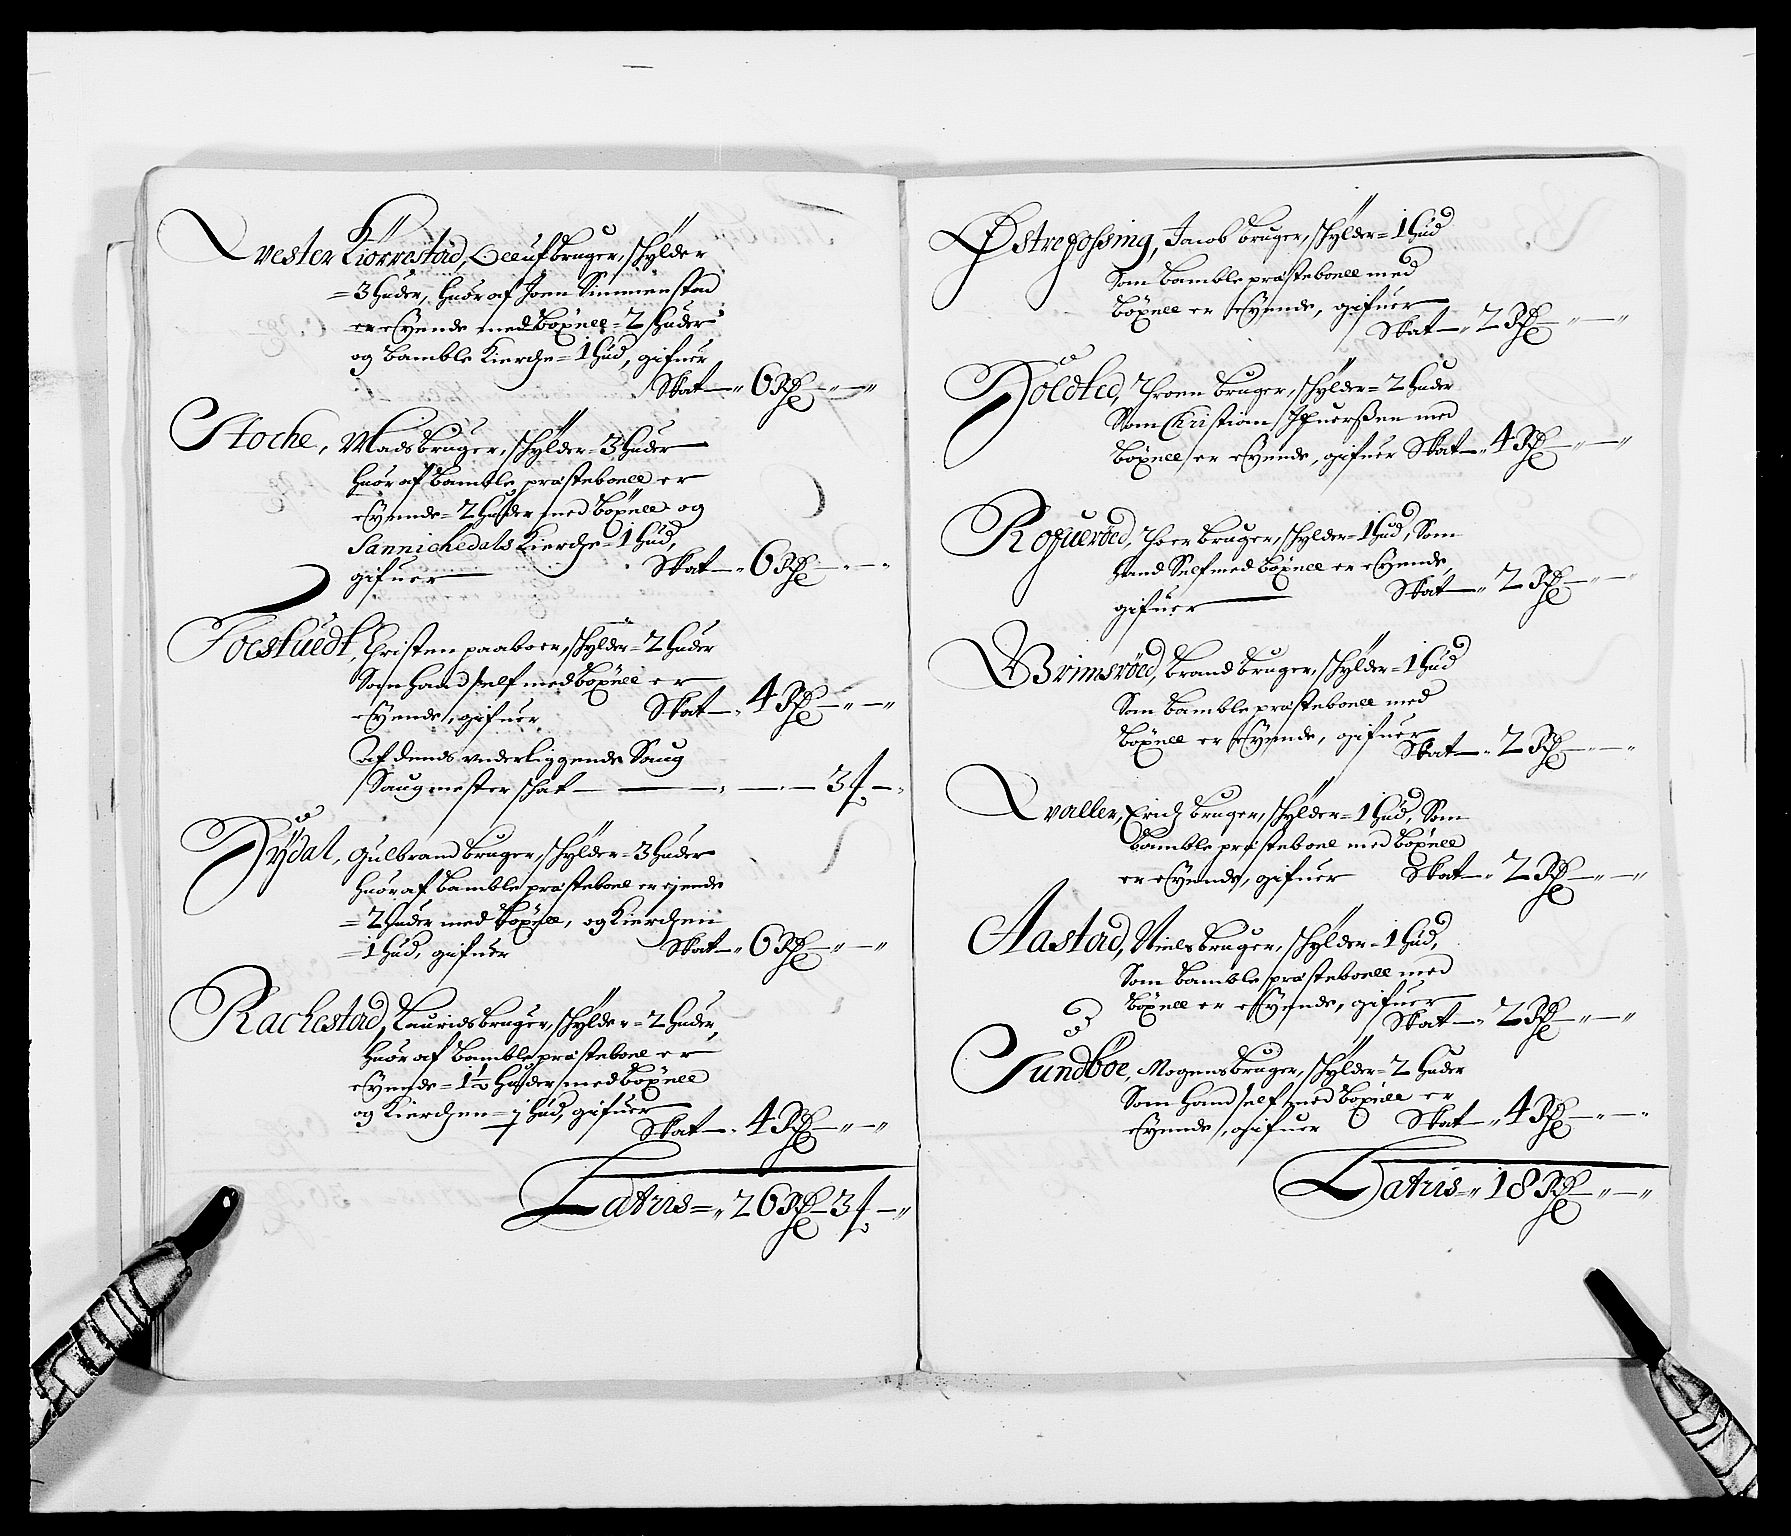 Vester Kiörrestad, Oeluf bruger, schylder
= 3 huder, huor af Joen Simmenstad
er eyende med böxnell = 2 huder
og Bamble Kierche = 1 hud, gifuer
Skat — „ 6 Rdr — „ — „
Stoche, Mads bruger, schylder = 3 huder
huor af Bamble præstebolle er
eyende = 2 huder med böxnell og
Sannichedals Kierche = 1 hud,
gifuer — Skat — „ 6 Rdr — „ — „
Toestuedt, Christen paaboer, schylder = 2 huder
Som hand self med böxnell er
eyende, gifuer Skat — „ 4 Rdr — „ — „
Af dends vnderliggende Saug
Saugmester schat — „ — 3 ß — „
Dÿdal, Gulbrand bruger, schylder = 3 huder
huor af Bamble præsteboel er ejende
= 2 huder med böxnell, og Kierchen
= 1 hud, gifuer Skat — „ 6 Rdr — „ — „
Rachestad, Laurids bruger, schylder = 2 huder,
huor af Bamble præsteboel er
eyende = 1½ huder med böxnell
og Kierchen = ½ hud, gifuer
Skat — „ 4 Rdr — „ — „
Latris = „ 26 Rdr — 3 ß — „
Østre Fossing, Jacob bruger, schylder = 1 hud
Som Bamble præstebolle med
böxnell er eyende, gifuer
Skat — „ 2 Rdr — „ — „
Thron bruger, schylder = 2 huder
Som Christian Ifuerßen med
böxnell er eyende, gifuer Skat — „ 4 Rdr — „ — „
Rofueröed, Thoer bruger, schylder = 1 hud, Som
hand Self med böxnell er eyende,
gifuer — Skat — „ 2 Rdr — „ — „
Grimsröed, Brand bruger, schylder = 1 hud
Som Bamble præstebolle med
böxnell er eyende, gifuer
Skat — „ 2 Rdr — „ — „
Valler, Erich bruger, schylder = 1 hud, Som
Bamble præsteboel med böxnell
er eyende, gifuer Skat — „ 2 Rdr — „ — „
Aastad, Niels bruger, schylder = 1 hud,
Som Bamble præstebolle med
böxnell er eyende, gifuer
Skat — „ 2 Rdr — „ — „
Sundböe, Mogens bruger, schylder = 2 huder
Som hand self med böxnell er
eyende, gifuer Skat — „ 4 Rdr — „ — „
Latris = „ 18 Rdr — „ — „